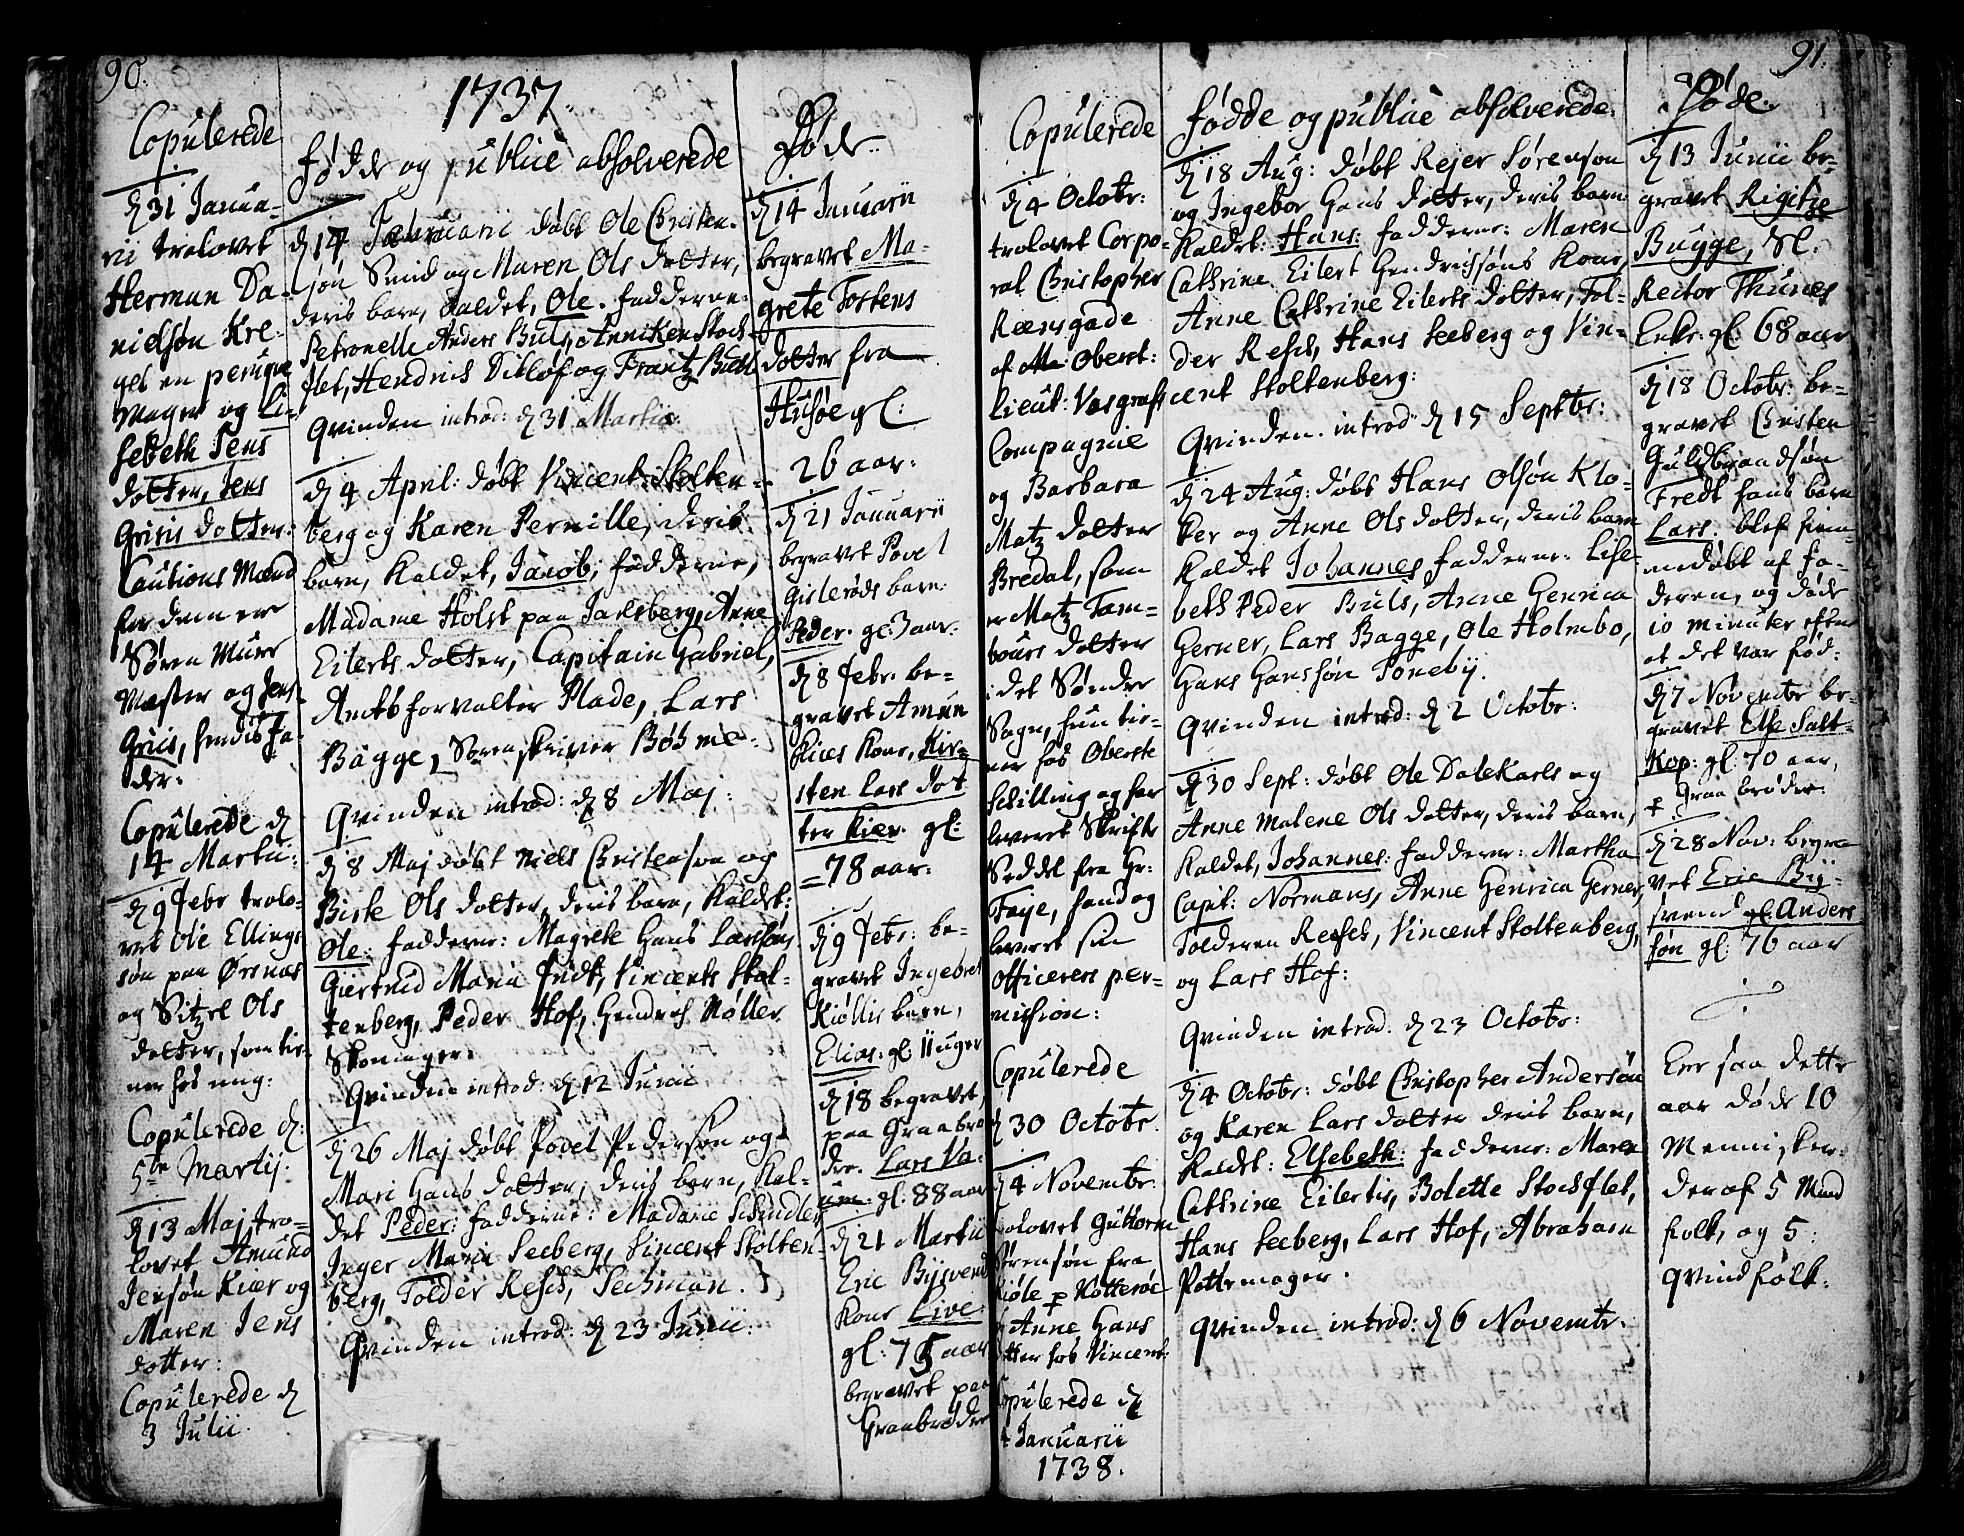 90.
1737.
Copulerede
d 31 Janua-
rii trolovet
Herman Da-
nielsøn Kre-
gel en peruqve
mager og Li-
sebeth Jens
dotter, Jens
Griis dotter:
Cautions Mænd
for dem er
Søren Muur
Mæster og Jens
Griis, hendis Fa-
der.
Copulerede d
14 Martii:
d 9 Febr trolo-
vet Ole Ellings
søn paa Ørsnæs
og Sitzel Ols
dotter, som tie-
ner hos mig:
Copulerede d:
5te Martij:
d 13 Maj tro-
lovet Amund
Jensøn Kiær og
Maren Jens
dotter:
Copulerede d
3 Julii.
Fødde og publicè absolverede
d 14 Januarii døbt Ole Christen-
søn Smid og Maren Ols dotter,
deris barn, kaldet, Ole. fadderne:
Petronelle Anders Buls, Anniken Stoch-
flet, Hendrich Ditlof og Frantz Buhl
Qvinden introd: d 31 Martii:
d 4 April: døbt Vincent Stolten-
berg og Karen Pernille, deris
barn, kaldet, Jacob; fadderne,
Madame Holst paa Jarlsberg, Anne
Eilerts dotter, Capitain Gabriel,
Amtsforvalter Plade, Lars
Bagge, Sorenskriver Bøhme:
Qvinden introd: d 8 Maj:
d 8 Maj døbt Niels Christensøn og
Birte Ols dotter, deris barn, kaldet:
Ole: fadderne: Magrete Hans Larsens,
Giertrud Maria Fridt, Vincents Stol-
tenberg, Peder Hof, Hendrich Møller
Skoninger.
Qvinden introd: d 12 Junii
d 26 Maj døbt Povel Pedersøn og
Mari Hans dotter, deris barn, kal-
det Peder: fadderne: Madame Schindler
Inger Maria Seeberg, Vincent Stolten-
berg, Tolder Resch, Sechman.
Qvinden introd: d 23 Junii:
Døde.
d 14 Januarii
begravet Ma-
grete Tostens
dotter fra
Husøe gl:
26 aar:
d 21 Januarii
begravet Povel
Gislerøds barn:
Peder. gl: 3 aar:
d 8 Febr: be-
gravet Amun
Kiærs kone, Kir-
sten Lars dot
ter Kier. gl:
78 aar.
d 9 Febr: be-
gravet Ingebret
Kiøllis barn,
Elias: gl: 11 uger
d 18 begravet,
paa Graabrø
der. Lars Va-
um. gl: 88 aar
d 21 Martii
Eric Bysvend
kone Live
gl: 75 aar
begravet paa
Graabrøder
91.
Copulerede
d 4 Octobr:
trolovet Corpo-
ral Christopher
Reensgade
af Oberst:
Lieut: Vosgrafs
Compagnie
og Barbara
Matz dotter
Bredal, som
er Matz Tam-
bours dotter
i det Søndre
Sogn, hun tie-
ner hos Oberste
Schilling og har
leveret Skrifte
Seddel fra Hr:
Faye, hand og
leveret sin
Officerers per-
mission:
Copulerede
d 30 Octobr.
d 4 Novembr:
rolovet Guttorm
Sørensøn fra
Kiøle p Nøtterøe
og Anne Hans
dotter hos Vincent:
Copulerede d
Januarii
1738.
Fødde og publicè absolverede.
d 18 Aug: døbt Rejer Sørensøn
og Ingebor Hans dotter, deris barn
kaldet: Hans: fadderne: Maren
Cathrine Eilert Hendrichsøns kone,
Anne Cathrine Eilerts dotter, Tol-
der Resch, Hans Seeberg og Vin-
cent Stoltenberg:
Qvinden. introd d 15 Septbr:
d 24 Aug: døbt Hans Olsøn Klo-
ker og Anne Ols dotter, deris barn
kaldet Johannes fadderne: Lise-
beth Peder Buls, Anne Henrica
Gerner, Lars Bagge, Ole Holmbo,
Hans Hanssøn Poneby.
Qvinden introd: d 2 Octobr:
d 30 Sept: døbt Ole Dalekarls og
Anne Malene Ols dotter, deris barn,
kaldet, Johannes: fadderne: Martha
Capt: Normans, Anne Henrica Gerner,
Tolderen Resch, Vincent Stoltenberg,
og Lars Hof:
Qvinden introd. d 23 Octobr:
d 4 Octobr: døbt Christopher Andersøn
og Karen Lars dotter deris barn,
kaldet: Elsebeth: fadderne: Maren
Cathrine Eilertis, Bolette Stochflet,
Hans Seeberg, Lars Hof, Abraham
Pottemager.
Qvinden introd: d 6 Novembr.
Døde.
d 13 Junii be-
gravet Regitze
Bugge, Sl:
Rector Thunes
Enke: gl: 68 aar
d 18 Octobr: be-
gravet Christen
Guldbrandsøn
Fredt hans barn
Lars: blef hiem-
medøbt af Fa-
deren, og døde
10 minuter efter
at det var fød:
d 7 Novembr be-
gravet Else Salt-
Kop: gl: 70 aar,
p Graa brøder.
d 28 Nov: begra
vet Eric By-
svend Anders
søn gl: 76 aar
Ere saa dette
aar døde 10
Mennisker:
deraf 5 Mand
folk, og 5:
qvindfolk: